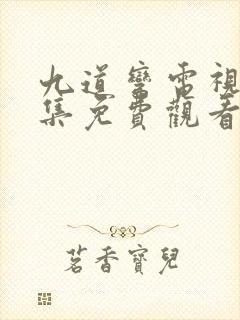 九道彎電視
集免費觀看
茗香寶兒